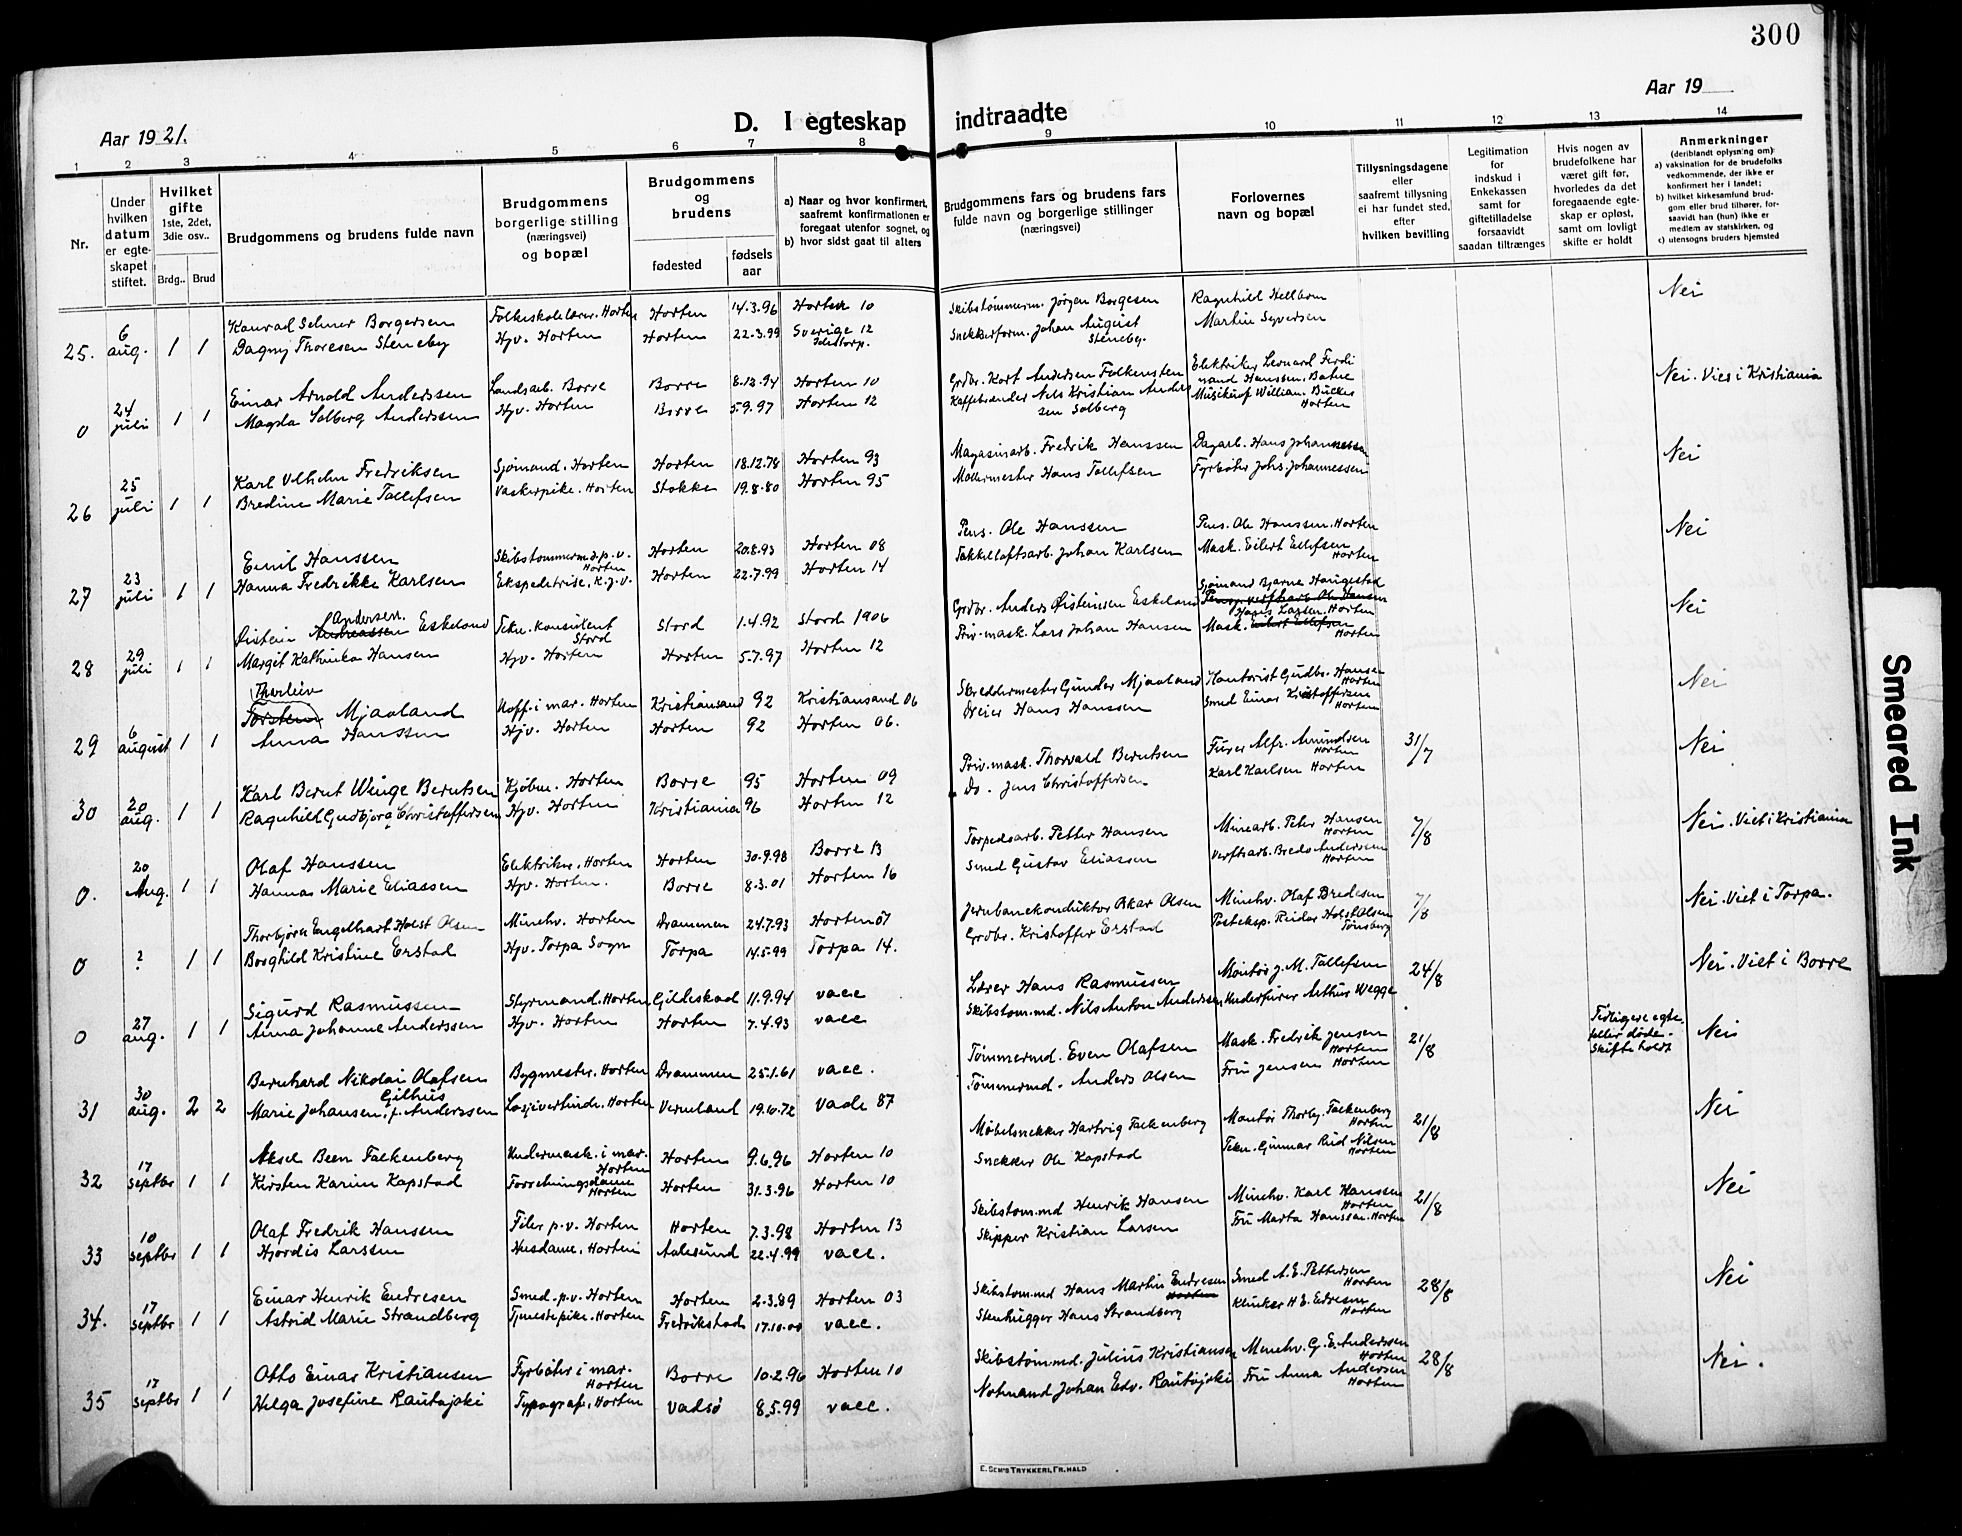 300
Aar 1921.
D. I egteskap indtraadte
Aar 19
1 2 3 4 5 6 7 8 9 10 11 12 13 14
Nr.
Under hvilken datum er egteskapet stiftet.
Hvilket gifte 1ste, 2det, 3die osv..
Brdg.. Brud
Brudgommens og brudens fulde navn
Brudgommens borgerlige stilling (næringsvei) og bopæl
Brudgommens og brudens
fødested
fødsels aar
a) Naar og hvor konfirmert, saafremt konfirmationen er foregaat utenfor sognet, og
b) hvor sidst gaat til alters
Brudgommens fars og brudens fars fulde navn og borgerlige stillinger (næringsvei)
Forlovernes navn og bopæl
Tillysningsdagene eller saafremt tillysning ei har fundet sted, efter hvilken bevilling
Legitimation for indskud i Enkekassen samt for giftetilladelse forsaavidt saadan tiltrænges
Hvis nogen av brudefolkene har været gift før, hvorledes da det foregaaende egteskap er opløst, samt om lovligt skifte er holdt
Anmerkninger (deriblandt oplysning om)
a) vaksination for de brudefolks vedkommende, der ikke er konfirmert her i landet;
b) hvilket kirkesamfund brudgom eller brud tilhører, forsaavidt han (hun) ikke er medlem av statskirken, og
c) utensogns bruders hjemsted
25. 6 aug. 1 1 Konrad Selmer Borgersen Folkeskolelærer. Horten Horten 14.3.96 Horten 10 Skibstømmerm. Jörgen Borgesen Ragnhild Hellbom Nei
Dagny Thoresen Steneby Hjv. Horten Horten 22.3.99 Sverige 12 Snekkerform. Johan August Steneby. Martin Syversen
0 24 juli 1 1 Einar Arnold Anderssen Landsarb. Borre Borre 8.12.94 Horten 10 Grdbr. Kort Andersen Falkensten Elektriker Leonard Ferdinand Hanssen. Nei. Viet i Kristiania
Magda Solberg Anderssen Hjv. Horten Borre 5.9.97 Horten 12 Kaffebrænder Nils Kristian Anderssen Solberg William Horten
26 25 juli 1 1 Karl Vilhelm Fredriksen Sjømand. Horten Horten 18.12.78 Horten 93 Magasinarb. Fredrik Hanssen Dagarb. Hans Johannessen Nei
Bredine Marie Tollefsen Vaskerpike. Horten Stokke 19.8.80 Horten 95 Møllermester Hans Tollefsen Fyrbøter Johs. Johannessen
27 23 juli 1 1 Emil Hanssen Skibstømmerm. p.v. Horten Horten 20.8.93 Horten 08 Pens. Ole Hanssen Pens. Ole Hanssen. Horten Nei
Hanna Fredrikke Karlsen Ekspeditrise. Horten 22.7.99 Horten 14 Takkelloftsarb. Johan Karlsen Mask. Eilert Ellefsen Horten
28 29 juli 1 1 Øistein Andreassen Andersen Eskeland Tekn. konsulent Stord Stord 1.4.92 Stord 1906 Grdbr. Anders Øisteinsen Eskeland Sjømand Bjarne Haugestad Nei
Margit Kathinka Hansen Hjv. Horten Horten 5.7.97 Horten 12 Priv. mask. Lars Johan Hansen Mask. Eilert Ellefsen Hans Larsen. Horten Horten
29 6 august 1 1 Torstein Thorleiv Mjaaland Uoff. i mar. Horten Kristiansand 92 Kristiansand 06 Skreddermester Gunder Mjaaland Kontorist Gudbr. Hansen Horten Nei
Anna Hanssen Hjv. Horten Horten 92 Horten 06. Dreier Hans Hanssen Smed Einar Kristoffersen Horten
30 20 aug. 1 1 Karl Bernt Winge Berntsen Kjøbm. Horten Borre 95 Horten 09 Priv. mask. Thorvald Berntsen Furer Alfr. Amundsen Horten 31/7 Nei
Ragnhild Gudbjørg Christoffersen Hjv. Horten Kristiania 96 Horten 12 Do. Jens Christoffersen Karl Karlsen Horten
0. 20 Aug. 1 1 Olaf Hanssen Elektriker. Horten Horten 30.9.98 Borre 13 Torpedoarb. Petter Hansen Minearb. Peter Hansen Horten 7/8 Nei. Viet i Kristiania
Hanna Marie Eliassen Hjv. Horten. Borre 8.3.01 Horten 16 Smed Gustav Eliassen Verftsarb. Bredo Anderssen Horten
0 ? 1 1 Thorbjörn Engelhart Holst Olsen Minehv. Horten Drammen 24.7.93 Horten 07 Jernbanekonduktør Oskar Olsen Minehv. Olaf Bredesen 7/8 Nei. Viet i Torpa.
Borghild Kristine Erstad Hjv. Torpa Sogn Torpa 14.5.99 Torpa 14. Grdbr. Kristoffer Erstad Posteksp. Reidar Holst Olsen Tønsberg
0 27 aug. 1 1 Sigurd Rasmussen Styrmand. Horten Gildeskaal 11.9.94 vacc Lærer Hans Rasmussen Montør J. M. Tollefsen 24/8 Nei. Viet i Borre
Anna Johanne Anderssen Hjv. Horten Horten 7.4.93 vacc Skibstøm.md. Nils Anton Anderssen Underfurer Arthur Wegge
31 30 aug. 2 2 Bernhard Nikolai Olafsen Gilhus Bygmester. Horten Drammen 25.1.61 vacc. Tømmermd. Even Olafsen Mask. Fredrik Jensen Horten 21/8 Tidligere egtefeller døde. Skifte holdt Nei
Marie Johansen, f. Anderssen Losjivertinde. Horten Vermland 19.10.72 Vade 87 Tømmermd. Anders Olsen Fru Jensen Horten
32 17 septbr 1 1 Aksel Been Falkenberg Undermask. i mar. Horten Horten 9.6.96 Horten 10 Møbelsnekker Hartvig Falkenberg Montør Thorbj. Falkenberg Horten 21/8 Nei
Kirsten Karine Kapstad Forretningsdame Horten Horten 31.3.96 Horten 10 Snekker Ole Kapstad Tekn. Gunnar Rud Nilsen Horten
33 10 septbr 1 1 Olaf Fredrik Hanssen Filer p.v. Horten Horten 7.3.98 Horten 13 Skibstøm.md Henrik Hansen Minehv. Karl Hanssen Horten 21/8 Nei
Hjørdis Larssen Husdame. Horten Aalesund 22.4.99 vacc. Skipper Kristian Larsen Fru Marta Hanssen. Horten
34. 17 septbr 1 1 Einar Henrik Endresen Smed. p.v. Horten Horten 2.3.89 Horten 03 Skibstøm.md Hans Martin Endresen Horten Smed A. E. Pettersen Horten 28/8 Nei
Astrid Marie Strandberg Tjenestepike. Horten Fredrikstad 17.10.00 vacc. Stenhugger Hans Strandberg Klinker H. E. Edresen Horten
35 17 septbr 1 1 Otto Einar Kristiansen Fyrbøter i mar. Horten Borre 10.2.96 Horten 10 Skibstøm.md. Julius Kristiansen Minehv. G. E. Anderssen Horten 28/8 Nei.
Helga Josefine Rautajoki Typograf. Horten Vadsø 8.5.99 vacc. Notmand Johan Edv. Rautajoki Fru Anna Andersen Horten
E. SEM'S TRYKKERI, FR.HALD
Smeared Ink